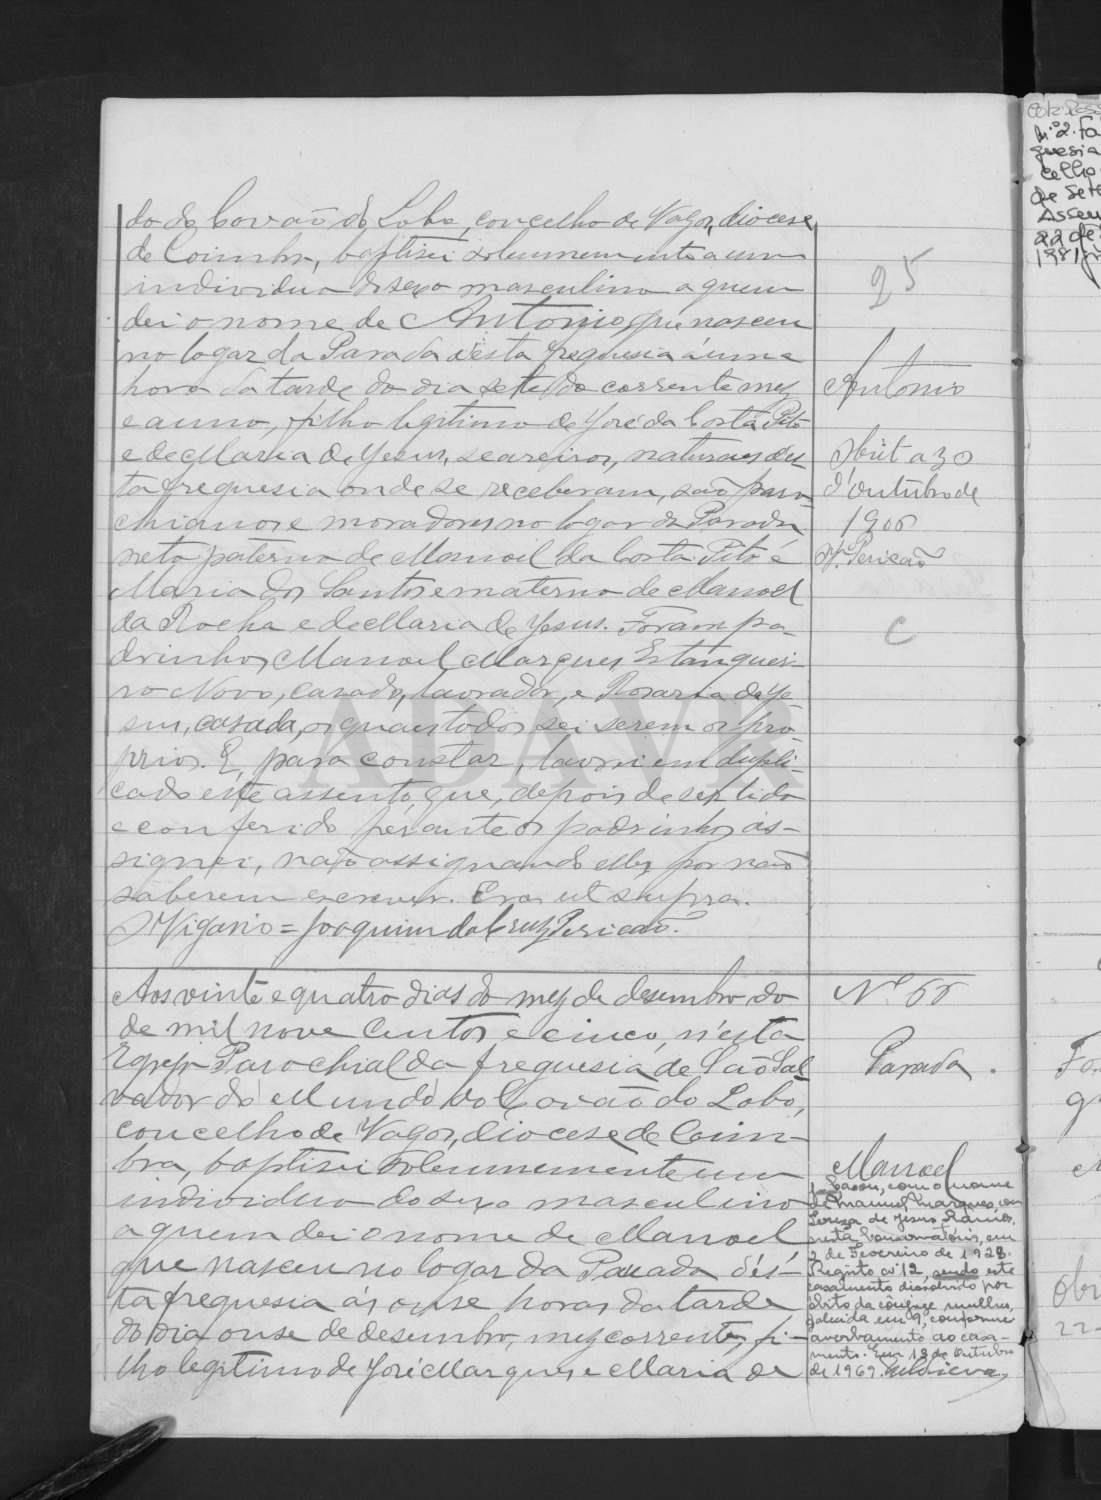 do do Covaõ do Lobo, concelho de Vagos, diocese
de Coimbra, baptisei solemnemente a um
individuo do sexo masculino a quem
dei o nome de Antonio, que nasceu
no logar da Parada d'esta freguesia á uma
hora da tarde do dia sete do corrente mez
e anno, filho legitimo de José da Costa Pitó
e de Maria de Jesus, seareiros, naturaes des-
ta freguesia onde se receberam, saõ paro-
chianos e moradores no logar da Parada
neto paterno de Manoel da Costa Pitó e
Maria dos Santos e materno de Manoel
da Rocha e de Maria de Jesus. Foram pa-
drinhos, Manoel Marques Estanquei-
ro Novo, casado, lavrador, e Rosaria de Je-
sus, casada, os quaes todos sei serem os pro-
prios. E, para constar, lavrei em dupli-
cado este assento, que, depois de ser lido
e conferido perante os padrinhos as-
signei, naõ assignando elles por naõ
saberem escrever. Era ut supra.
O Vigario = Joaquim da Cruz Pericaõ.
25
Antonio
Obiit a 30
d'outubro de
1906
Pericaõ
C
Aos vinte e quatro dias do mez de desembro do
de mil nove centos e cinco, n'esta
Egreja Parochial da freguesia de Saõ Sal-
vador do Mundo do Covaõ do Lobo,
concelho de Vagos, diocese de Coim-
bra, baptisei solemnemente um
individuo do sexo masculino
a quem dei o nome de Manoel
que nasceu no logar da Parada d'es-
ta freguesia ás onse horas da tarde
do dia onse de desembro, mez corrente, fi-
lho legitimo de José Marques e Maria de
Nº 66
Parada.
Manoel
1 Casou, com o nome
de Manuel Marques, com
Teresa de Jesus Ramos,
nesta Conservatória, em
2 de Fevereiro de 1928.
Registo nº 12, sendo este
casamento dissolvido por
óbito da cônjuge mulher,
falecida em 9, conforme
averbamento ao casa-
mento. Em 18 de Outubro
de 1969.
nº 2. Fa
guesia
celho
de Sete
Assen
22 de
1981
ADAVR